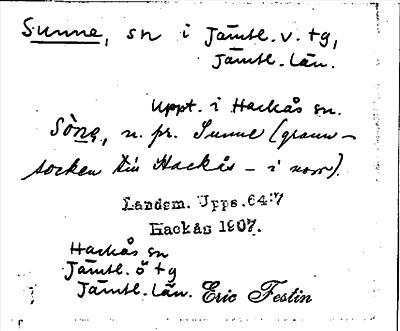 Sunne, sn i Jämtl. v. tg,
Jämtl. län.
Uppt. i Hackås sn.
Sòne, n. pr. Sunne (grann-
socken till Hackås – i norr).
Landsm. Upps. 64:7
Hackås 1907.
Hackås sn
Jämtl. ö tg
Jämtl. län.
Eric Festin